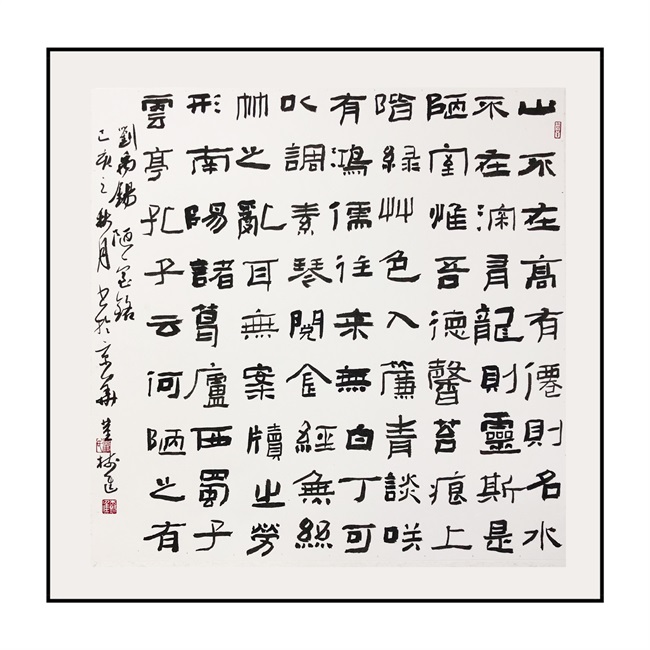 山不在高有僊則名水
不在深有龍則靈斯是
陋室惟吾德馨苔痕上
階緑艸色入簾青談咲
有鴻儒往来無白丁可
以調素琴閱金經無絲
竹之亂耳無案牘之勞
形南陽諸葛廬西蜀子
雲亭孔子云何陋之有
劉禹錫陋室銘
己亥之秋月書於京華